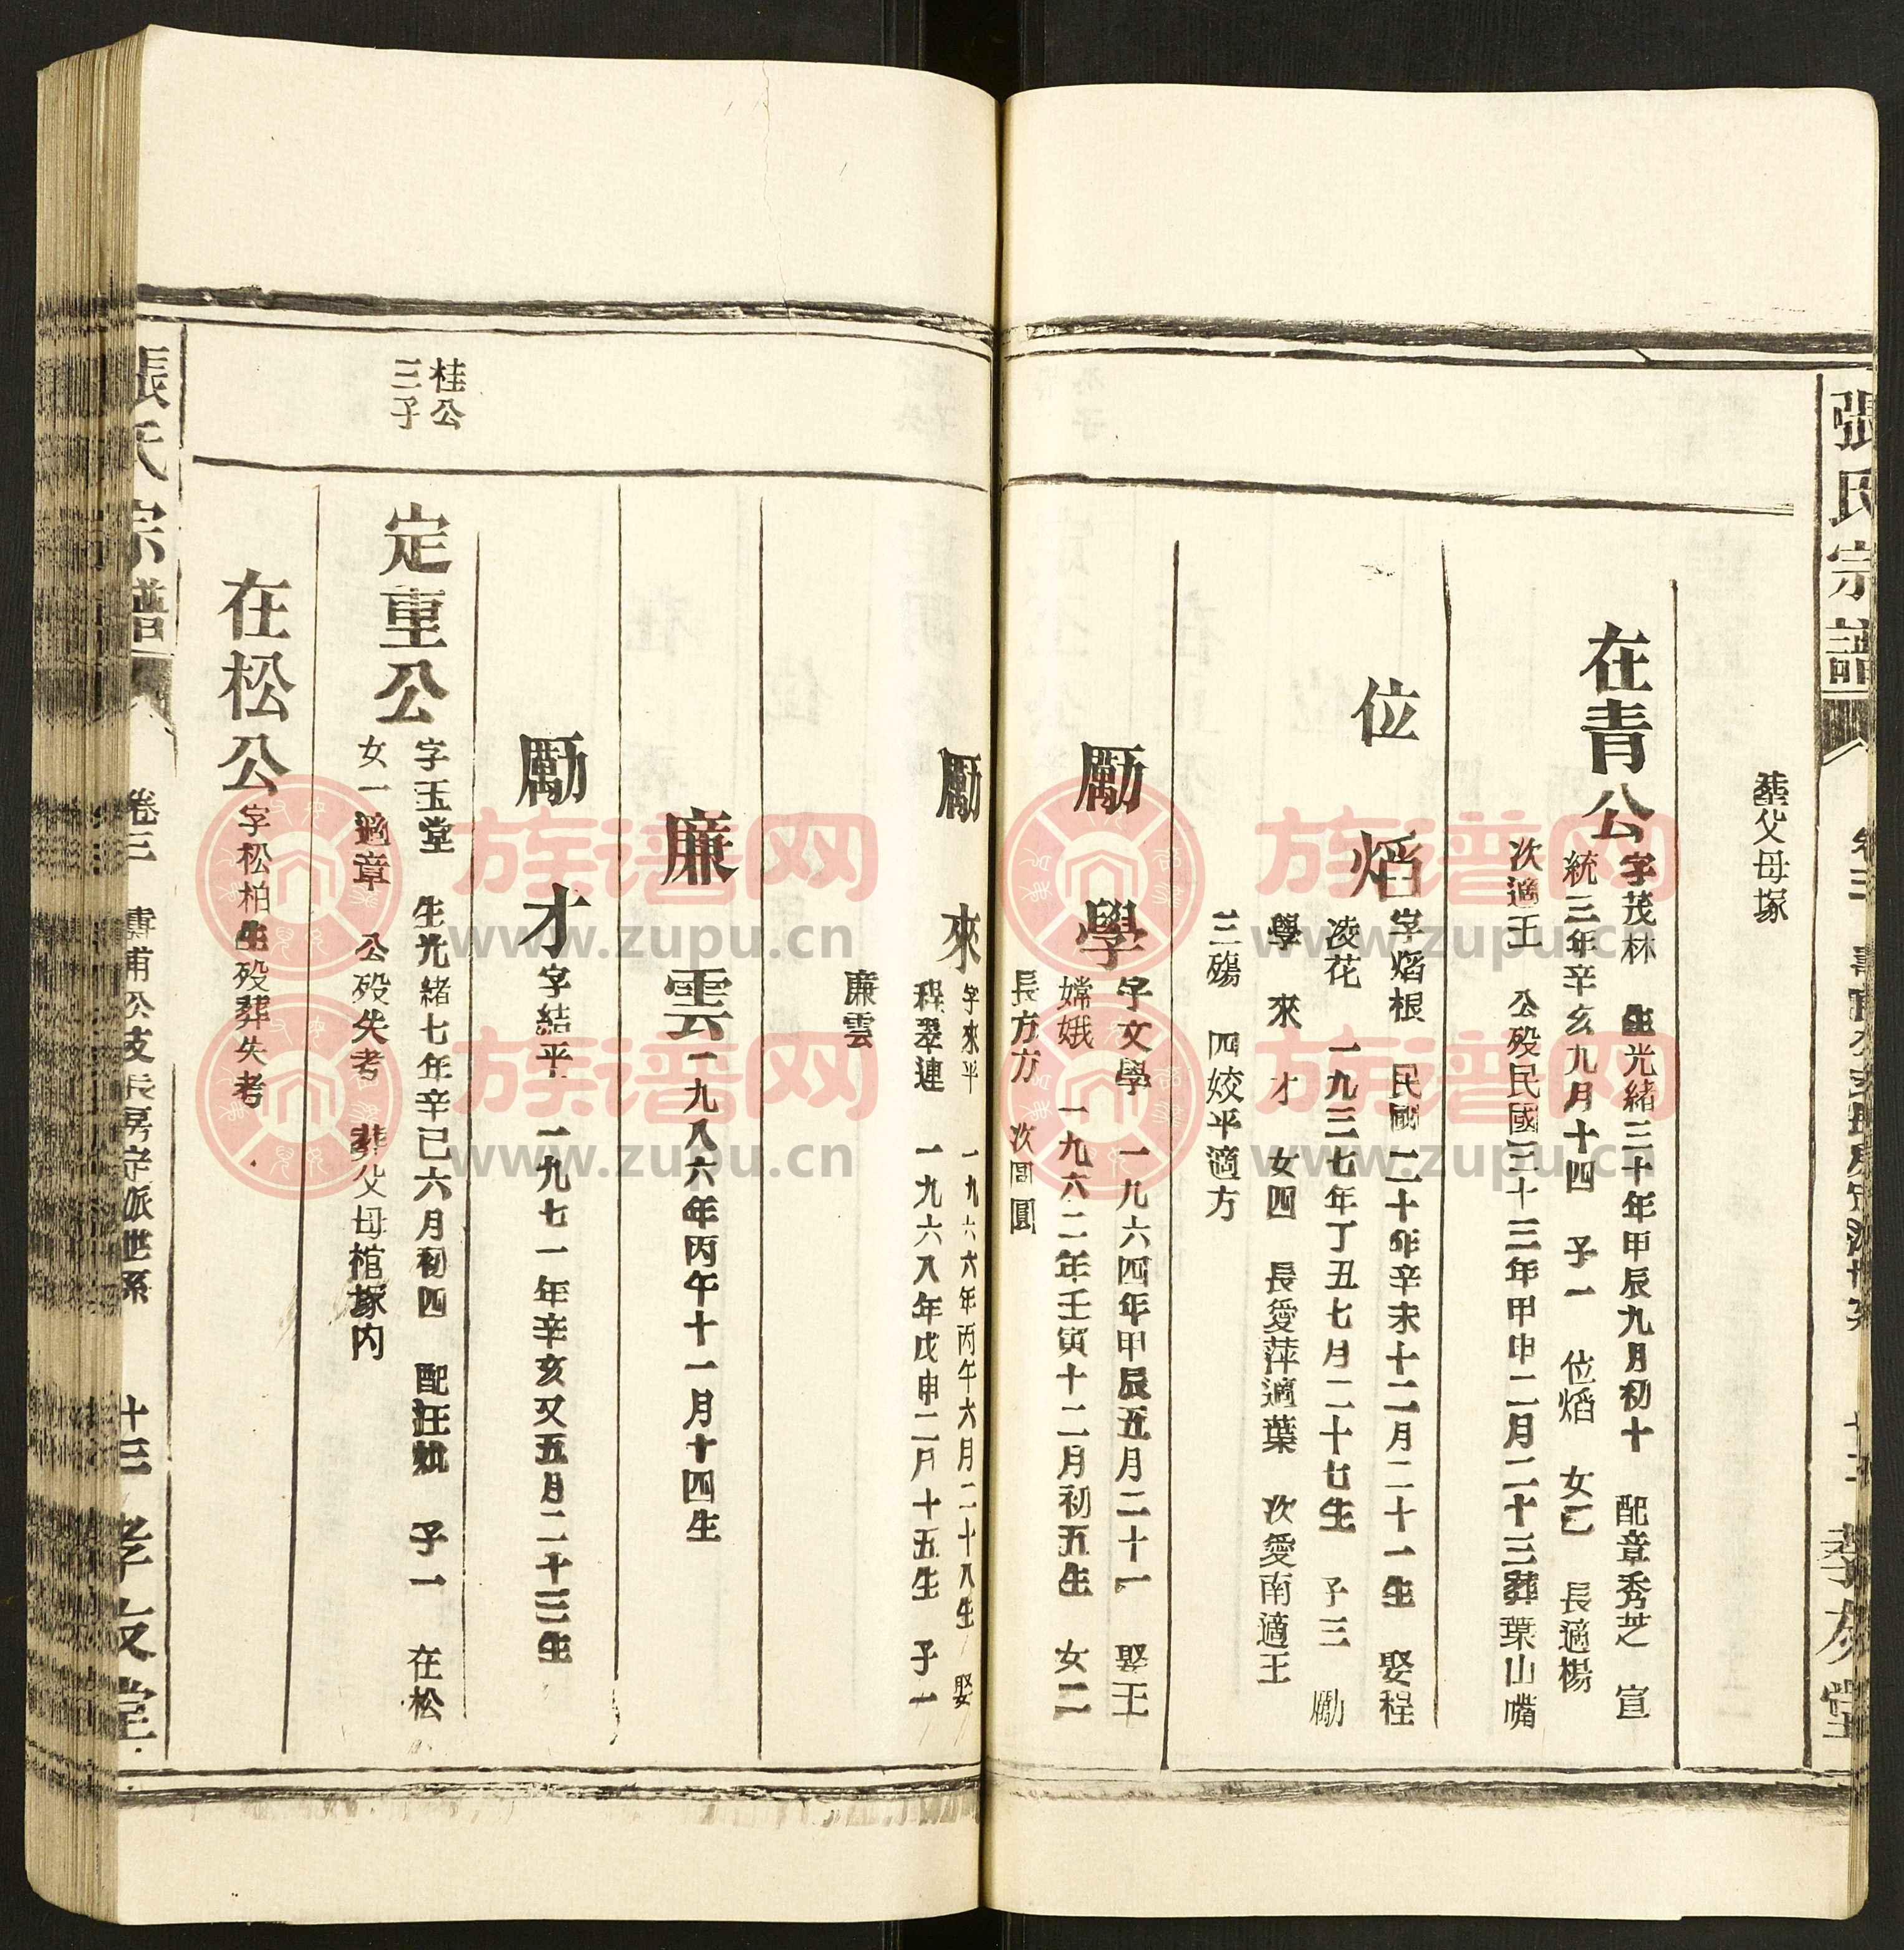 張氏宗譜
孝友堂
葬父母塚
在青公
字茂林　生光緒三十年甲辰九月初十　配章秀芝　宣
統三年辛亥九月十四　子一　位熖　女二　長適楊
次適王　公歿民國三十三年甲申二月二十三葬葉山嘴
位熖
字熖根　民國二十年辛未十二月二十一生　娶程
凌花　一九三七年丁丑七月二十七生　子三　勵
學　來　才　女四　長愛萍適葉　次愛南適王
三殤　四姣平適方
勵學
字文學　一九六四年甲辰五月二十一　娶王
嫦娥　一九六二年壬寅十二月初五生　女二
長方方　次圓圓
勵來
字來平　一九六六年丙午六月二十八生　娶
程翠連　一九六八年戊申二月十五生　子一
廉雲
廉雲
一九八六年丙午十一月十四生
勵才
字結平　一九七一年辛亥又五月二十三生
桂公
三子
定重公
字玉堂　生光緒七年辛巳六月初四　配汪𡛖　子一　在松
女一適章　公歿失考　葬父母棺塚內
在松公
字松柏生歿葬失考
張氏宗譜　卷三　公支長房定派世系　十三　孝友堂
族谱网
www.zupu.cn
族谱网
www.zupu.cn
族谱网
www.zupu.cn
族谱网
www.zupu.cn